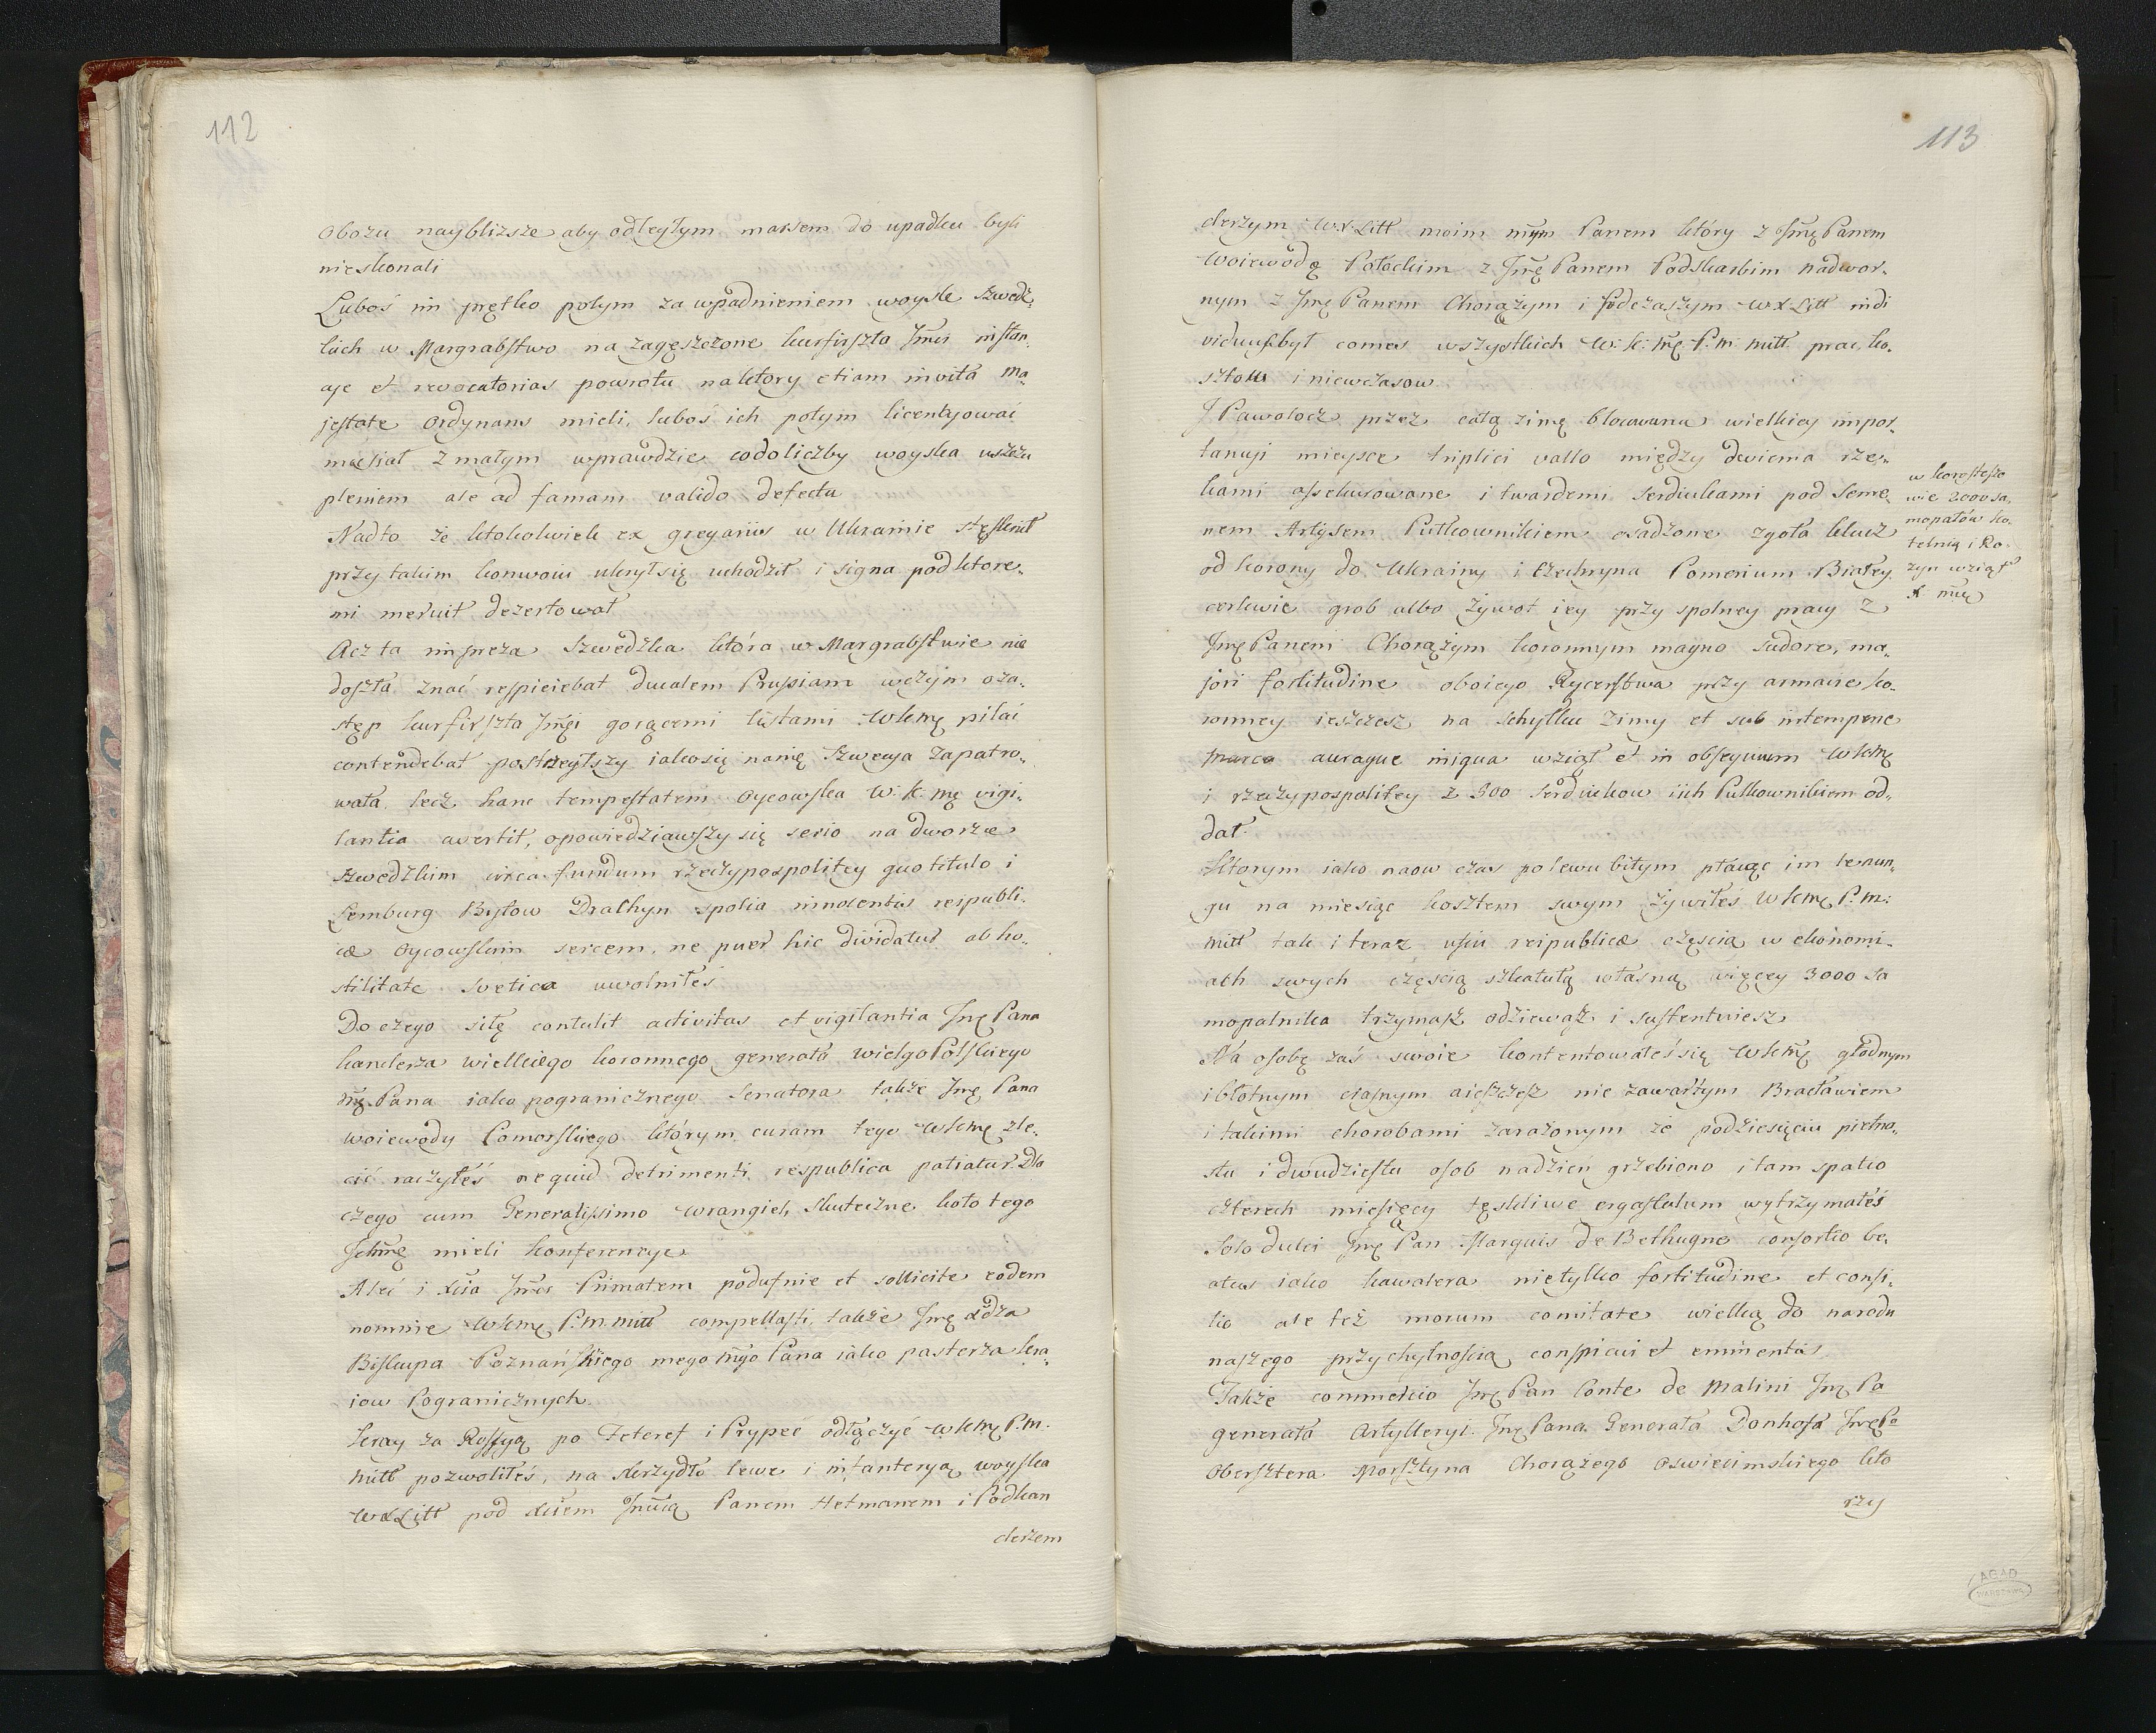 112
obozu naybliższe aby odległym marsem do upadku byli
nieskonali
Luboś im prętko potym za wpadnieniem woysk Szwedz„
kich w Margrabstwo na zagęszczone kurfirszta Jmci instan„
cye et revocatorias powrotu na ktory etiam invita Ma„
jestate ordynans mieli, luboś ich potym licentyować
musiał z małym wprawdzie co do liczby woyska uszczu
pleniem ale ad famam valido defectu
Nadto że ktokolwiek ex gregariis w Ukrainie stęsknił
przy takim konwoiu ukrył się uchodził i signa pod ktore„
mi meruit dezertował
Acz ta impreza Szwedzka która w Margrabstwie nie
doszła znać respiciebat ducalem Prussiam wczym oza„
stęp kurfirszta Jmci gorącemi listami Wkmę pilai
contendebat postrzegłszy iakosię namię Szwecya zapatro„
wała, lecz hanc tempestatem oycowska W. K. mę vigi„
lantia avertit, opowiedziawszy się serio na dworze
szwedzkim circa fundum rzeczypospolitey quo titulo i
Lemburg Bytow Drathyn spolia innocentis reipubli„
cæ oycowskim sercem, ne puer hic dividatur ab ho„
stilitate svetica uwolniłeś
Do czego siłę contulit activitas et vigilantia Jmę Pana
kanclerza wielkiego koronnego generała wielgoPolskiego
mę Pana iako pogranicznego Senatora także Jmę Pana
woiewody Pomorskiego którym curam tego Wkmę zle„
cić raczyłeś ne quid detrimenti respublica patiatur. Dla
czego cum Generalissimo Wrangiel, skuteczne koło tego
Ichmę mieli konferencye
Aleć i Xcia Jmci Primatem poduśnie et sollicite eodem
nomnie Wkmę P. m. mitt compellasti, także Jmę Xdza
Biskupa Poznańskiego mego mgo Pana iako pasterza kra„
iow Pogranicznych.
Kray za Rossyą po Teteref i Prypeć odłączyć Wkmę P. m.
mitt pozwoliłeś, na skrzydło lewe i infanteryą woyska
WXLitt pod Xciem Jmcią Panem Hetmanem i Podkan
clerzem
113
clerzym WX Litt moim mym Panem który z Jmę Panem
Woiewodą Połockim z Jmę Panem Podskarbim nadwor„
nym z Jmę Panem Chorążym i Podczaszym WX Litt indi
viduus był comes wszystkich W. k. mę. P. m. mitt prac, ko„
sztow i niewczasow
I Pawołocz przez całą zimę blocowana wielkiey impor„
tancyi mieysce triplici vallo między dwiema rze„
kami assekurowane i twardemi Serdiukami pod Seme„
nem Artysem Pułkownikiem osadzone zgoła klucz
od korony do Ukrainy i Czechryna Pomerium Białey
cerkwie grob albo żywot iey przy spolney pracy z
Jmę Panem Chorążym koronnym magno sudore, ma„
jori fortitudine oboiego Rycerstwa przy armacie ko„
ronney ieszczesz na schyłku zimy et sub intemperie
marca auraque iniqua wziął et in obsequium Wkmę
i rzeczypospolitey z 900 serdiukow iich Pułkownikiem od„
dał
Ktorym iako naow czas po lewu bitym płacąc im
gu na miesiąc kosztem swym żywiłeś Wkmę P. m:
mitt tak i teraz usiu reipublicæ częścią w ekonomi„
ach swych częścią szkatułą własną więcey 3000 sa
mopalnika trzymasz odziewasz i sustentuiesz
Na osobę zaś swoie kontentowałeś się Wkmę głodnym
i błotnym ciasnym aieszczesz nie zawartym Bracławiem
i takimi chorobami zarażonym że podziesięciu piętna„
stu i dwudziestu osob nadzień grzebiono i tam spatio
czterech miesięcy tęskliwe ergastulum wytrzymałeś
Solo dulci Jmę Pan Marquis de Bethugne consortio be„
atus iako kawalera nietylko fortitudine et consi„
lio ale też morum comitate wielką do narodu
naszego przychylnością conspicui et eminentis
Także commercio Jmę Pan Conte de Malini Jmę Pa
generała Artylleryi. Jmę Pana Generała Donhofa JmęPa
Obersztera Morsztyna Chorążego Oswiecimskiego kto
rzy
w korosteszo
wie 2000 sa„
mopałow ko„
telnią i Ro„
zyn wziął
X mę
AGAD
WARSZAWA